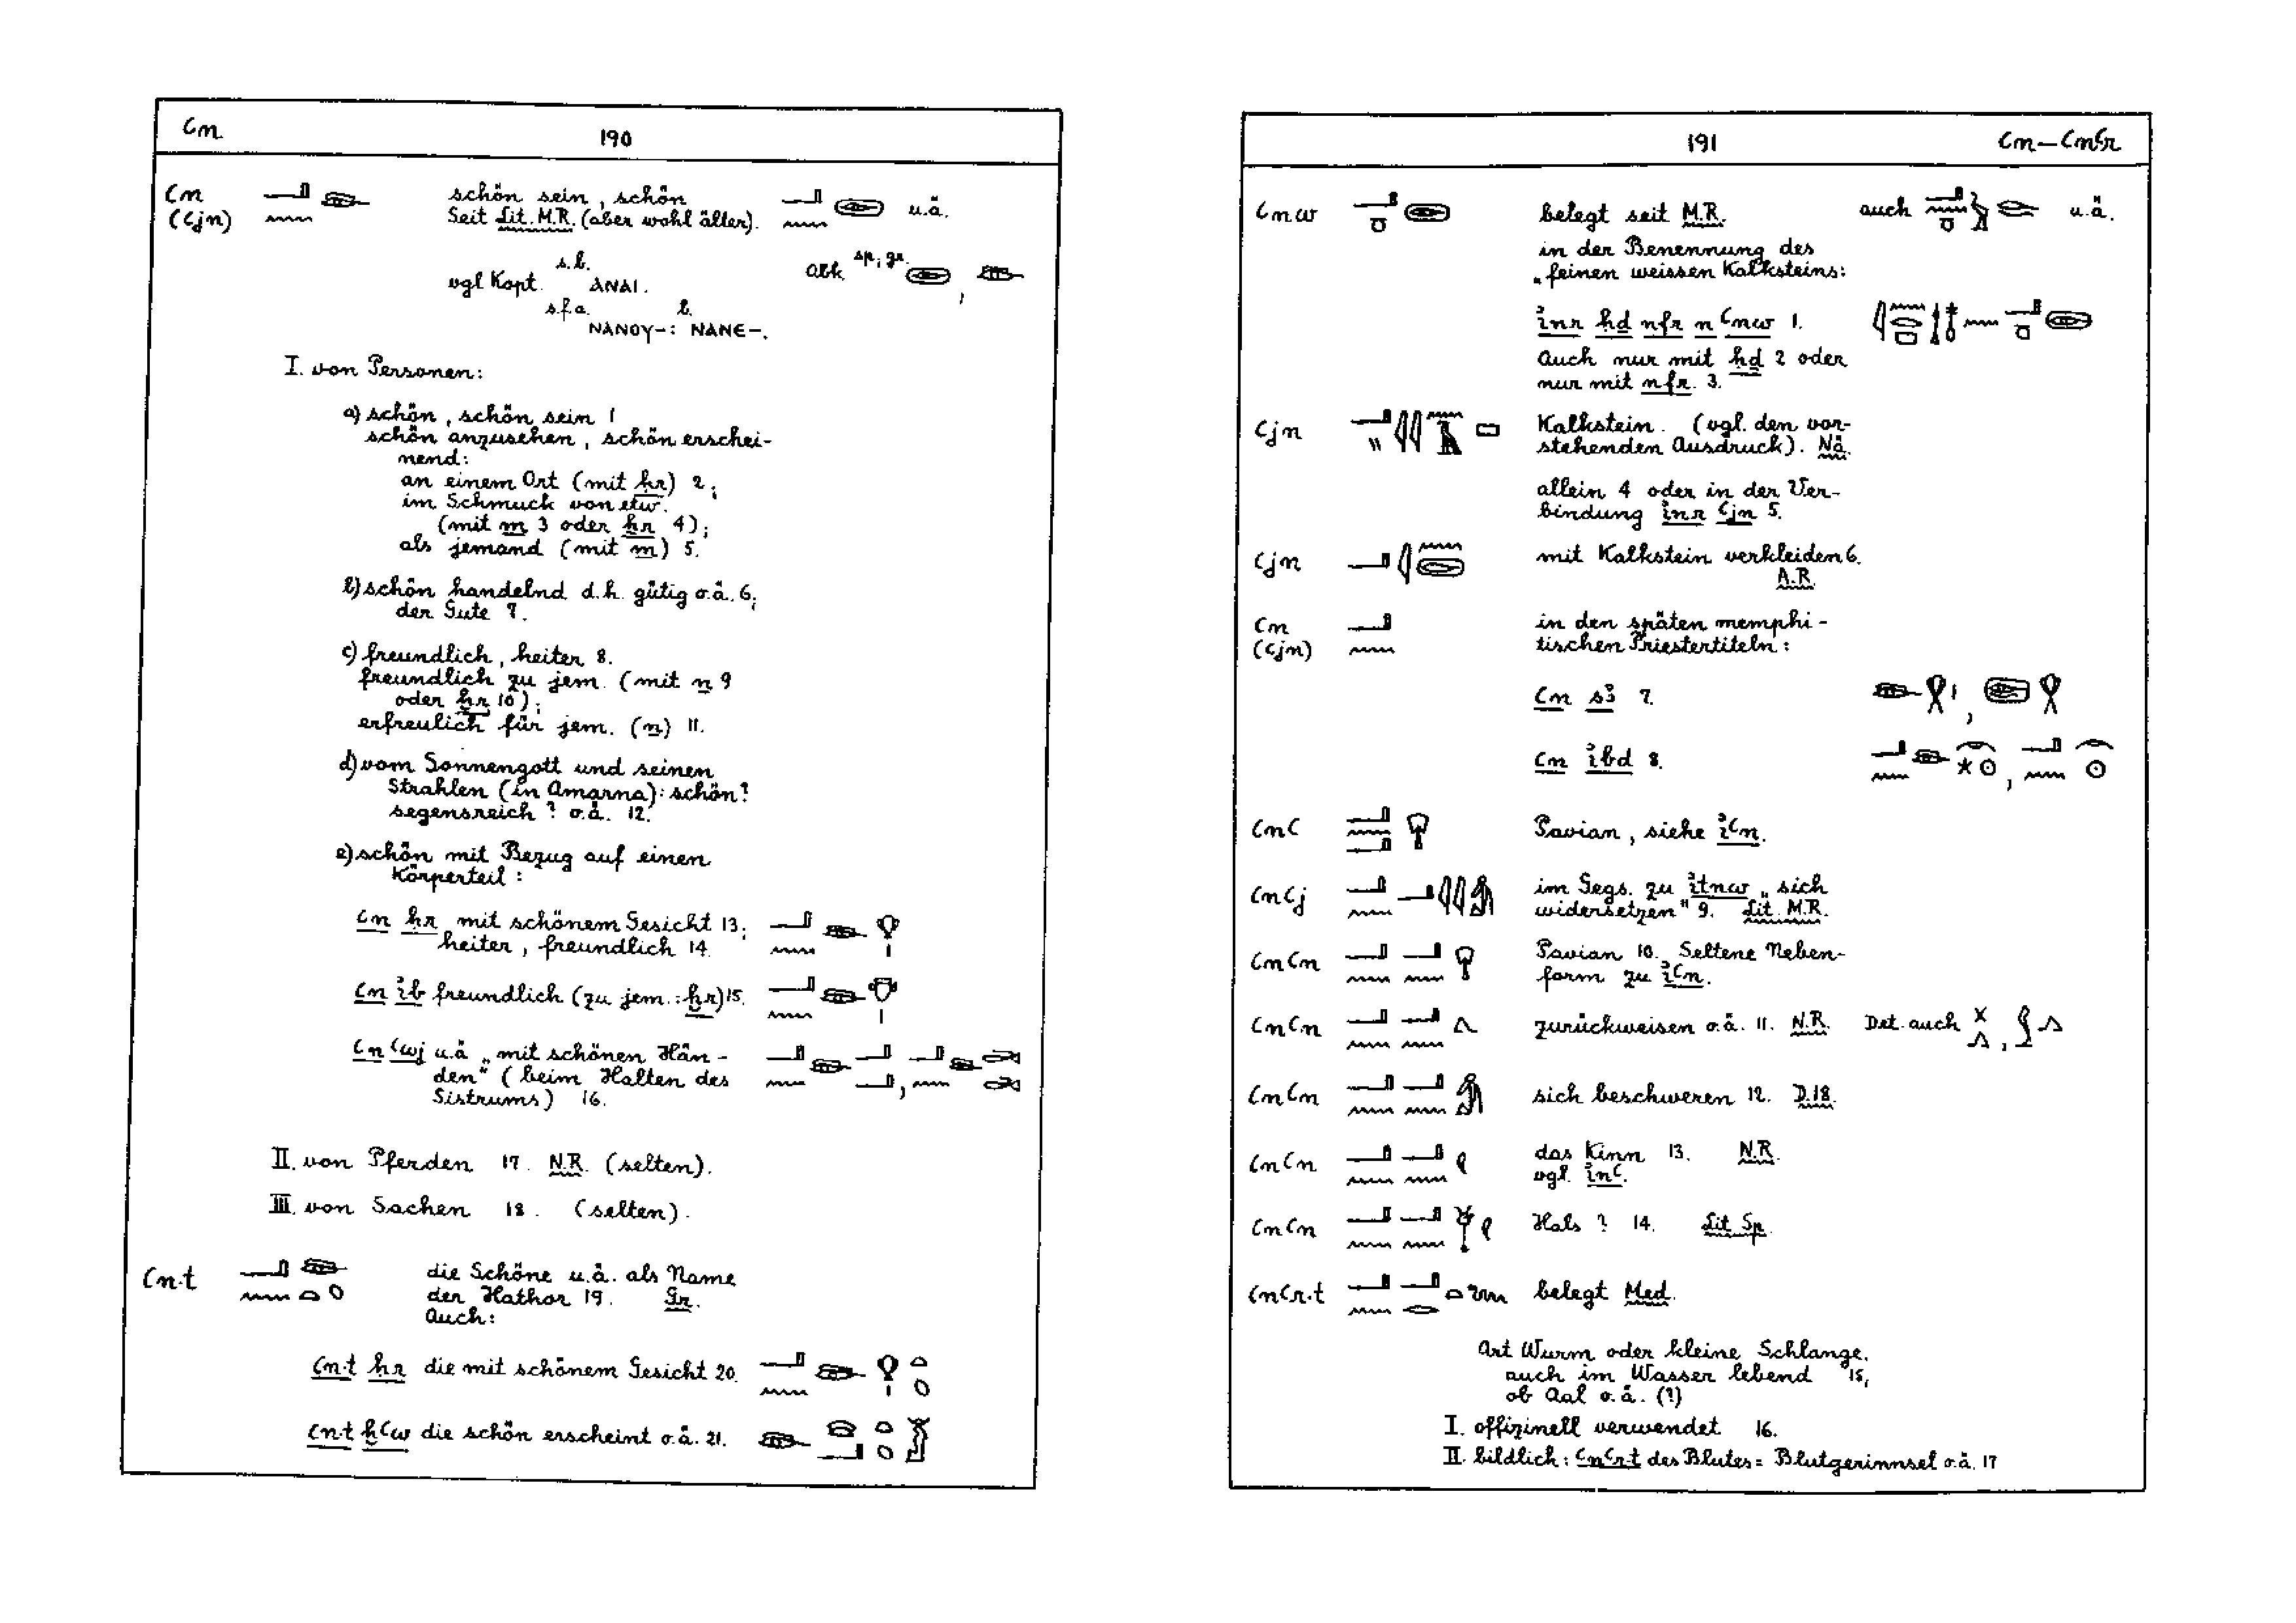 ꜥn
190
ꜥn schön sein, schön u.ä.
(ꜥjn) Seit Lit. M.R. (aber wohl älter).
s.b. abk. sp; gr.
vgl Kopt. ⲀⲚⲀⲒ.
s.f.a. b.
ⲚⲀⲚⲞⲨ-: ⲚⲀⲚⲈ-.
I. von Personen:
a) schön, schön sein 1
schön anzusehen, schön erschei-
nend:
an einem Ort (mit ḥr) 2;
im Schmuck von etw.
(mit m 3 oder ẖr 4);
als jemand (mit m) 5.
b) schön handelnd d.h. gütig o.ä. 6;
der Gute 7.
c) freundlich, heiter 8.
freundlich zu jem. (mit n 9
oder ḥr 10);
erfreulich für jem. (n) 11.
d) vom Sonnengott und seinen
Strahlen (in Amarna): schön?
segensreich? o.ä. 12.
e) schön mit Bezug auf einen
Körperteil:
ꜥn ḥr mit schönem Gesicht 13;
heiter, freundlich 14.
ꜥn ib freundlich (zu jem.: ḥr) 15.
ꜥn ꜥwj u.ä „mit schönen Hän-
den" (beim Halten des
Sistrums) 16.
II. von Pferden 17. N.R. (selten).
III. von Sachen 18. (selten).
ꜥn·t die Schöne u.ä. als Name
der Hathor 19. Gr.
Auch:
ꜥn·t ḥr die mit schönem Gesicht 20.
ꜥn·t ḫꜥw die schön erscheint o.ä. 21.
191
ꜥn—ꜥnꜥr
ꜥnw belegt seit M.R. auch u.ä.
in der Benennung des
„feinen weissen Kalksteins:
inr ḥḏ nfr n ꜥnw 1.
Auch nur mit ḥḏ 2 oder
nur mit nfr. 3.
ꜥjn Kalkstein. (vgl. den vor-
stehenden Ausdruck). Nä.
allein 4 oder in der Ver-
bindung inr ꜥjn 5.
ꜥjn mit Kalkstein verkleiden 6.
A.R.
ꜥn in den späten memphi-
(ꜥjn) tischen Priestertiteln:
ꜥn sꜣ 7.
ꜥn ibd 8.
ꜥnꜥ Pavian, siehe iꜥn.
ꜥnꜥj im Gegs. zu itnw „sich
widersetzen" 9. Lit. M.R.
ꜥnꜥn Pavian 10. Seltene Neben-
form zu iꜥn.
ꜥnꜥn zurückweisen o.ä. 11. N.R. Det. auch
ꜥnꜥn sich beschweren 12. D.18.
ꜥnꜥn das Kinn 13. N.R.
vgl. inꜥ.
ꜥnꜥn Hals? 14. Lit. Sp.
ꜥnꜥr·t belegt Med.
Art Wurm oder kleine Schlange,
auch im Wasser lebend 15,
ob Aal o.ä. (?)
I. offizinell verwendet 16.
II. bildlich: ꜥnꜥr·t des Blutes = Blutgerinnsel o.ä. 17